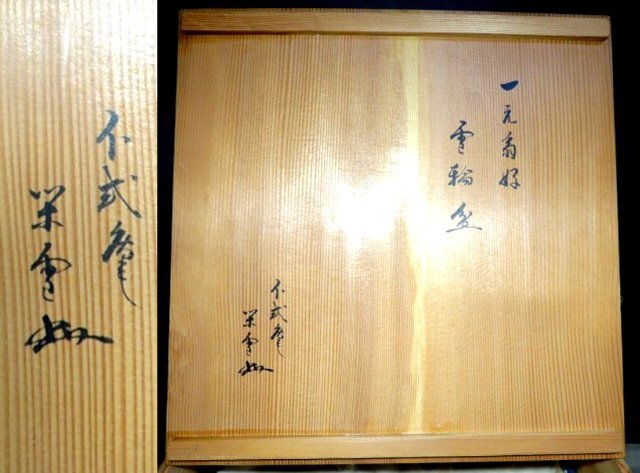 不式庵
栄雪
一元翁好
雪輪盆
不式庵
栄雪